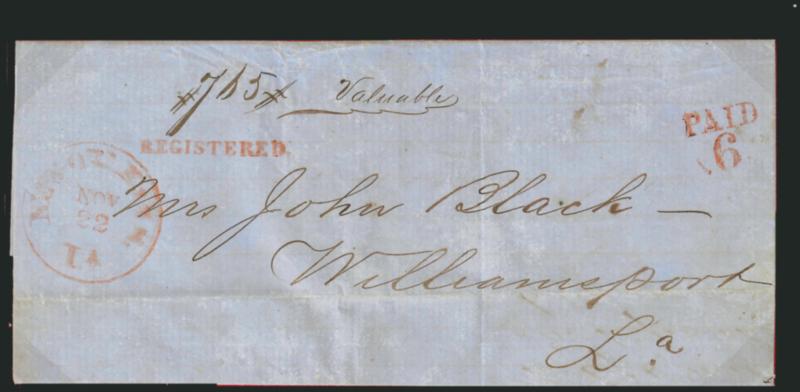 #765# Valuable
REGISTERED.
PAID
6
NEW ORLEANS
NOV
22
LA
Mrs John Black —
Williamsport
La